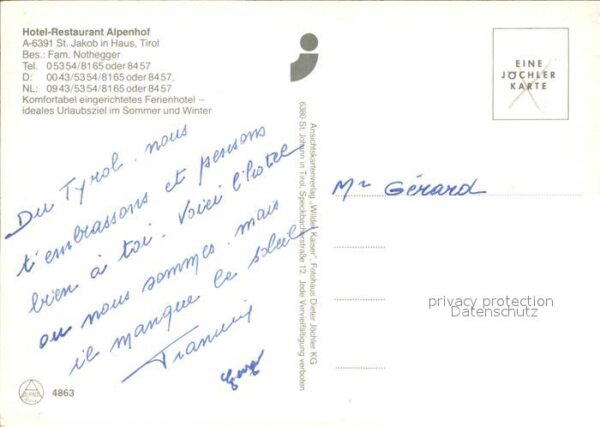 Hotel-Restaurant Alpenhof
A-6391 St. Jakob in Haus, Tirol
Bes.: Fam. Nothegger
Tel. 05354/8165 oder 8457
D: 0043/5354/8165 oder 8457,
NL: 0943/5354/8165 oder 8457
Komfortabel eingerichtetes Ferienhotel –
ideales Urlaubsziel im Sommer und Winter
Du Tyrol, nous
t'embrassons et pensons
bien à toi. Voici l'hotel
ou nous sommes, mais
il manque le soleil
4863
Ansichtskartenverlag „Wilder Kaiser", Fotohaus Dieter Jöchler KG
6380 St. Johann in Tirol, Speckbacherstraße 12 Jede Vervielfältigung verboten
EINE
JÖCHLER
KARTE
Mr Gérard
privacy protection
Datenschutz